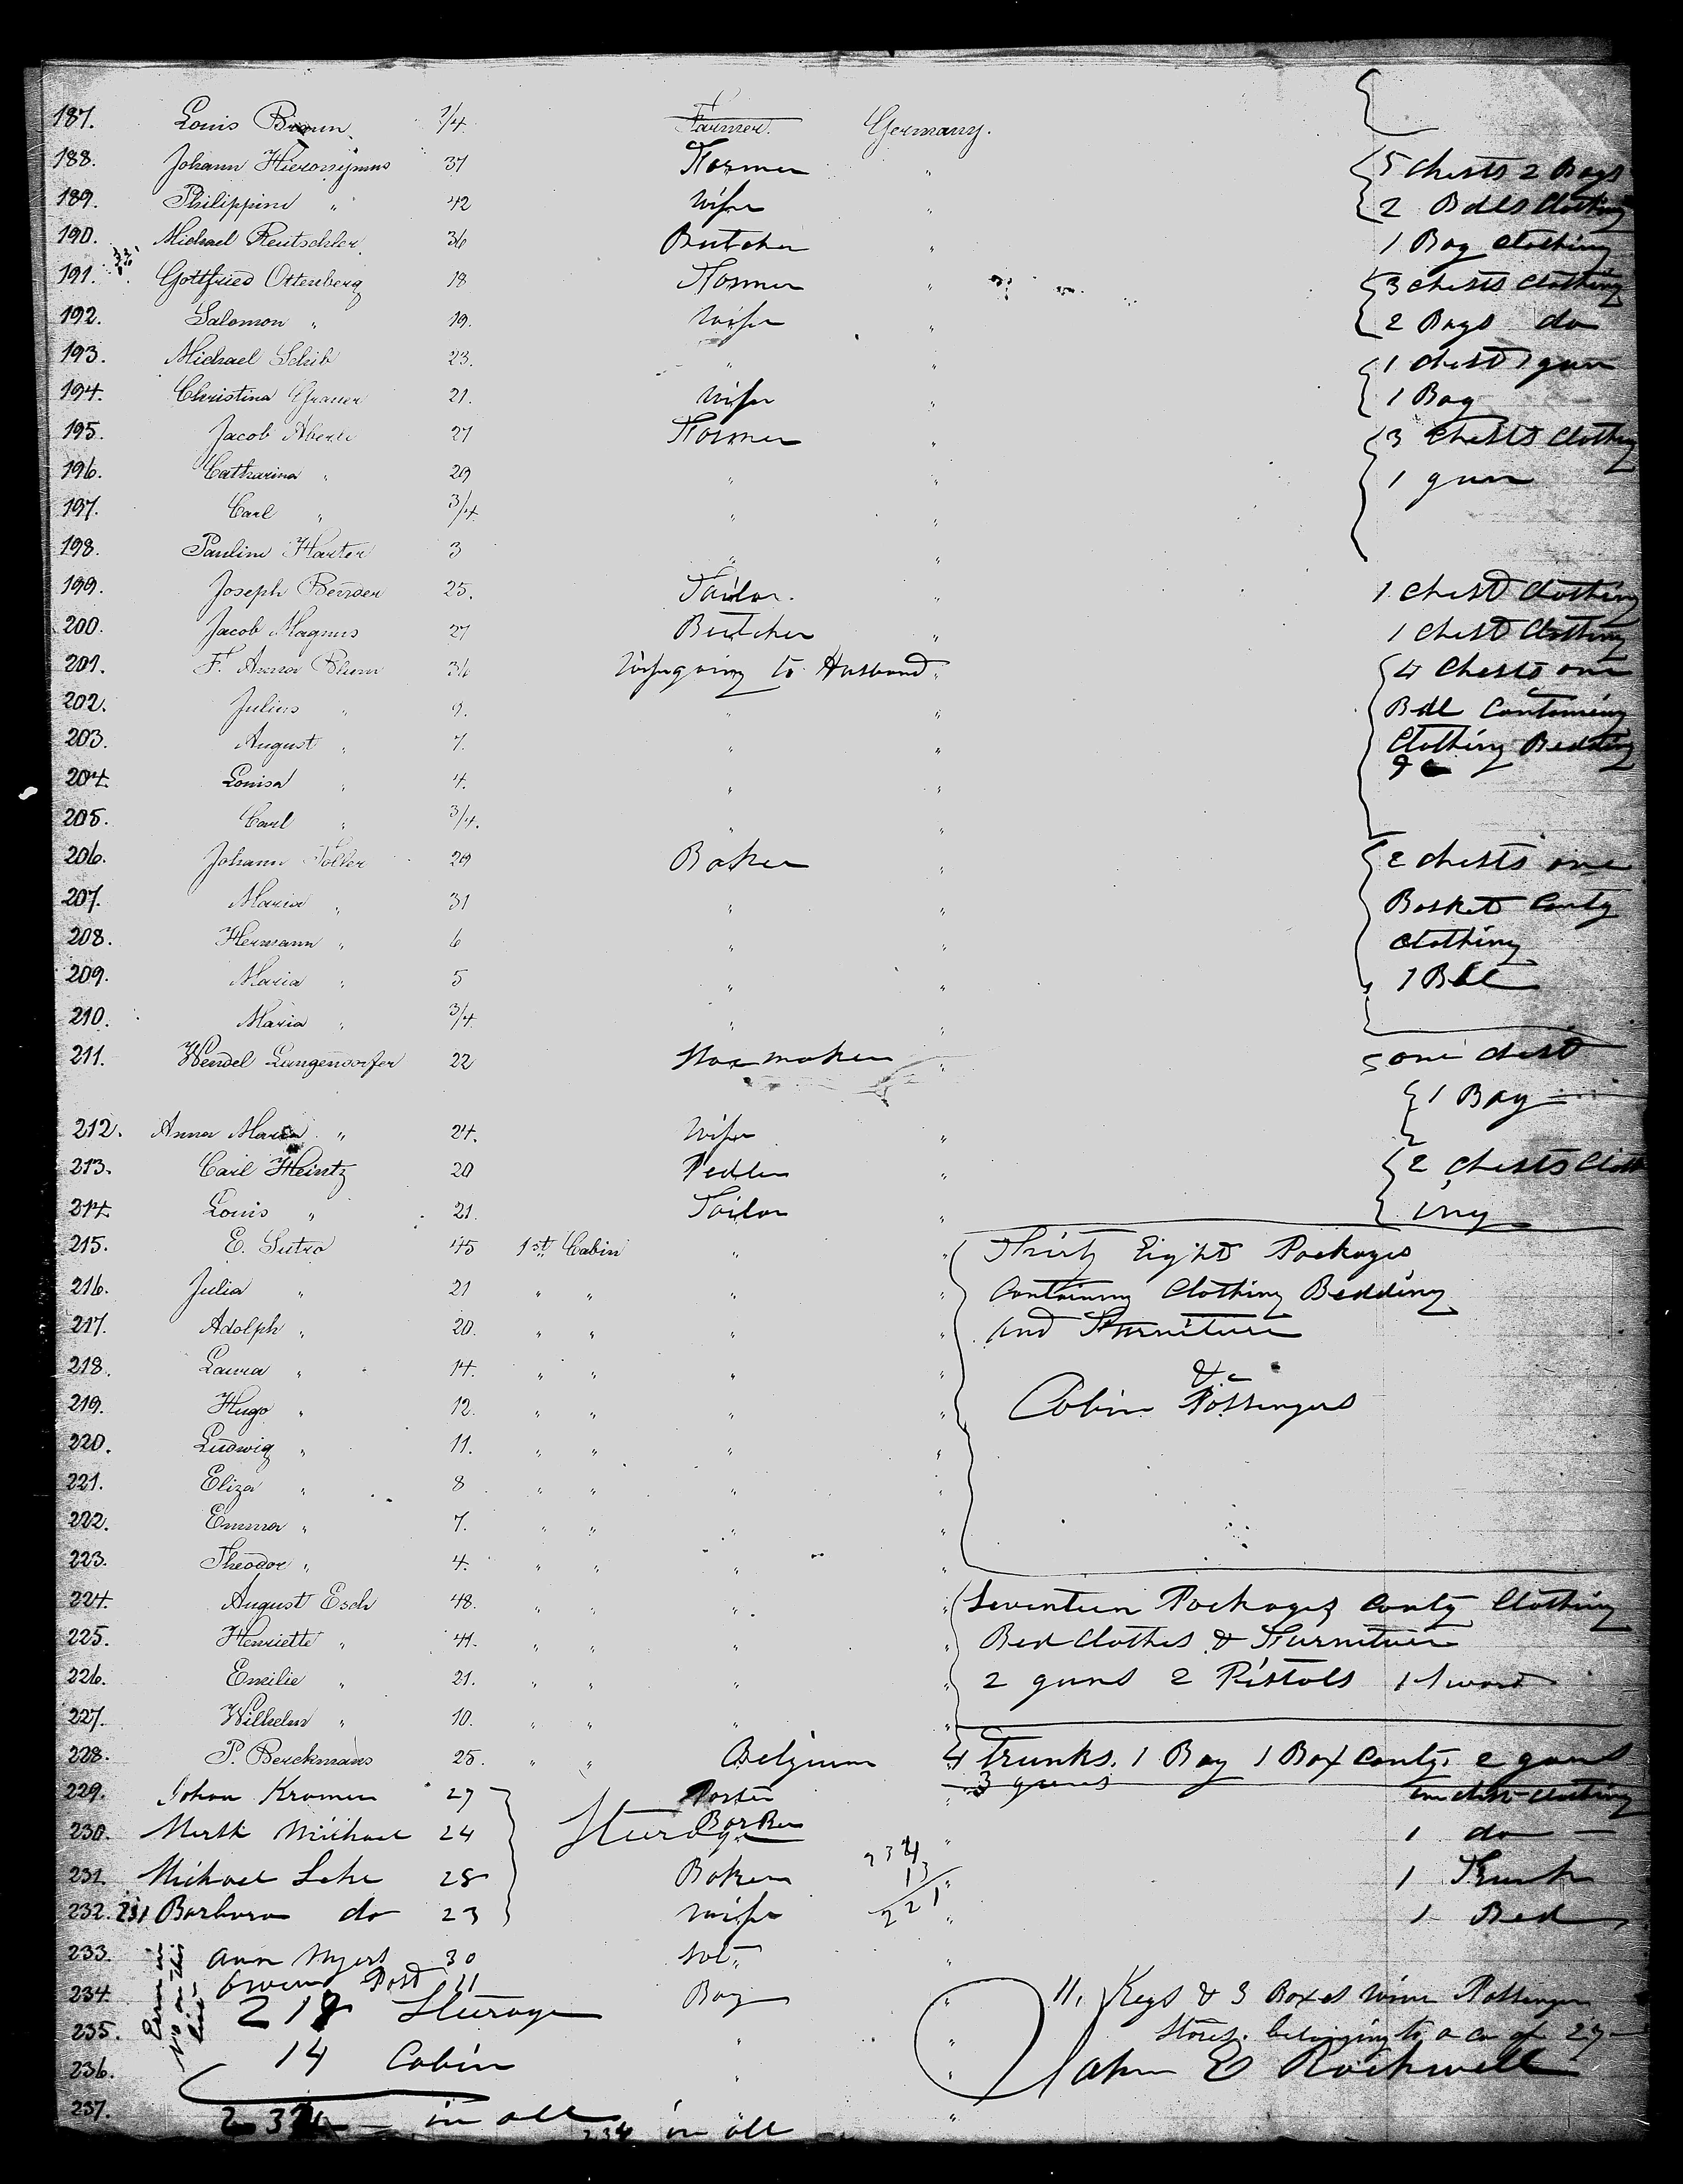 187. Louis Braun 3/4 Farmer. Germany.
188. Johann Hieronymus 37 Farmer " { 5 Chests 2 Bags
189. Philippine " 42 Wife " 2 Bdls Clothing
190. Michael Reutschler 36 Butcher " 1 Bag Clothing
191. Gottfried Ottenberg 18 Farmer " { 3 Chests Clothing
192. Salomon " 19. Wife " 2 Bags do
193. Michael 23. " " { 1 Chest 1 gun
194. Christina 21. Wife " 1 Bag
195. Jacob Aberle 27 Farmer " { 3 Chests Clothing
196. Catharina " 29 " " 1 gun
197. Carl " 3/4 " "
198. Pauline Harter 3 " "
199. Joseph Bender 25. Tailor. " 1 Chest Clothing
200. Jacob Magnus 27 Butcher " 1 Chest Clothing
201. F. Anna Blum 36 Wife going to Husband " { 4 Chests one
202. Julius " 9. " " Bdl Containing
203. August " 7. " " Clothing Bedding
204. Louisa " 4. " " &c
205. Carl " 3/4. " "
206. Johann 29 Baker " { 2 Chests one
207. Maria " 31 " " Basket Contg
208. Hermann " 6 " " Clothing
209. Maria " 5 " " 1 Bdl
210. Maria " 3/4. " "
211. Wendel Langendorfer 22 " one chest
{ 1 Bag
212. Anna Maria " 24. Wife "
213. Carl Heintz 20 Pedler " { 2 Chests Cloth
214. Louis " 21. Tailor " ing
215. E. Sutro 45 1st Cabin " " { Thirty Eight Packages
216. Julia " 21 " " " " Containing Clothing Bedding
217. Adolph " 20. " " " " and Furniture
218. Laura " 14. " " " " &c
219. Hugo " 12. " " " " Cabin Passengers
220. Ludwig " 11. " " " "
221. Eliza " 8 " " " "
222. Emma " 7. " " " "
223. Theodor " 4. " " " "
224. August Esch 48. " " " " { Seventeen Packages Contg Clothing
225. Henriette " 44. " " " " Bed Clothes & Furniture
226. Emilie " 21. " " " " 2 guns 2 Pistols 1 Sword
227. Wilhelm " 10. " " " "
228. P. Berckmans 25. " " Belgium " 4 Trunks. 1 Bag 1 Box Contg. 2 guns
3 guns
229. Johan Kramer 29 " one chest clothing
230. Michael 24 Steerage Barber " 1 do
234
13
221
231. Michael 28 Baker " 1 Trunk
232. 231 Barbara do 23 Wife " 1 Bed
233. Ann 30 "
Post 11
234. 218 Steerage Boy " 11, Kegs & 3 Boxes Wine Passenger
235. " " Stores. belonging to
236. 14 Cabin " " John E Rockwell
237. 232 in all 234 in all "
Error in
No on this
list